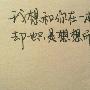 我想和你在一
却也只是想想而